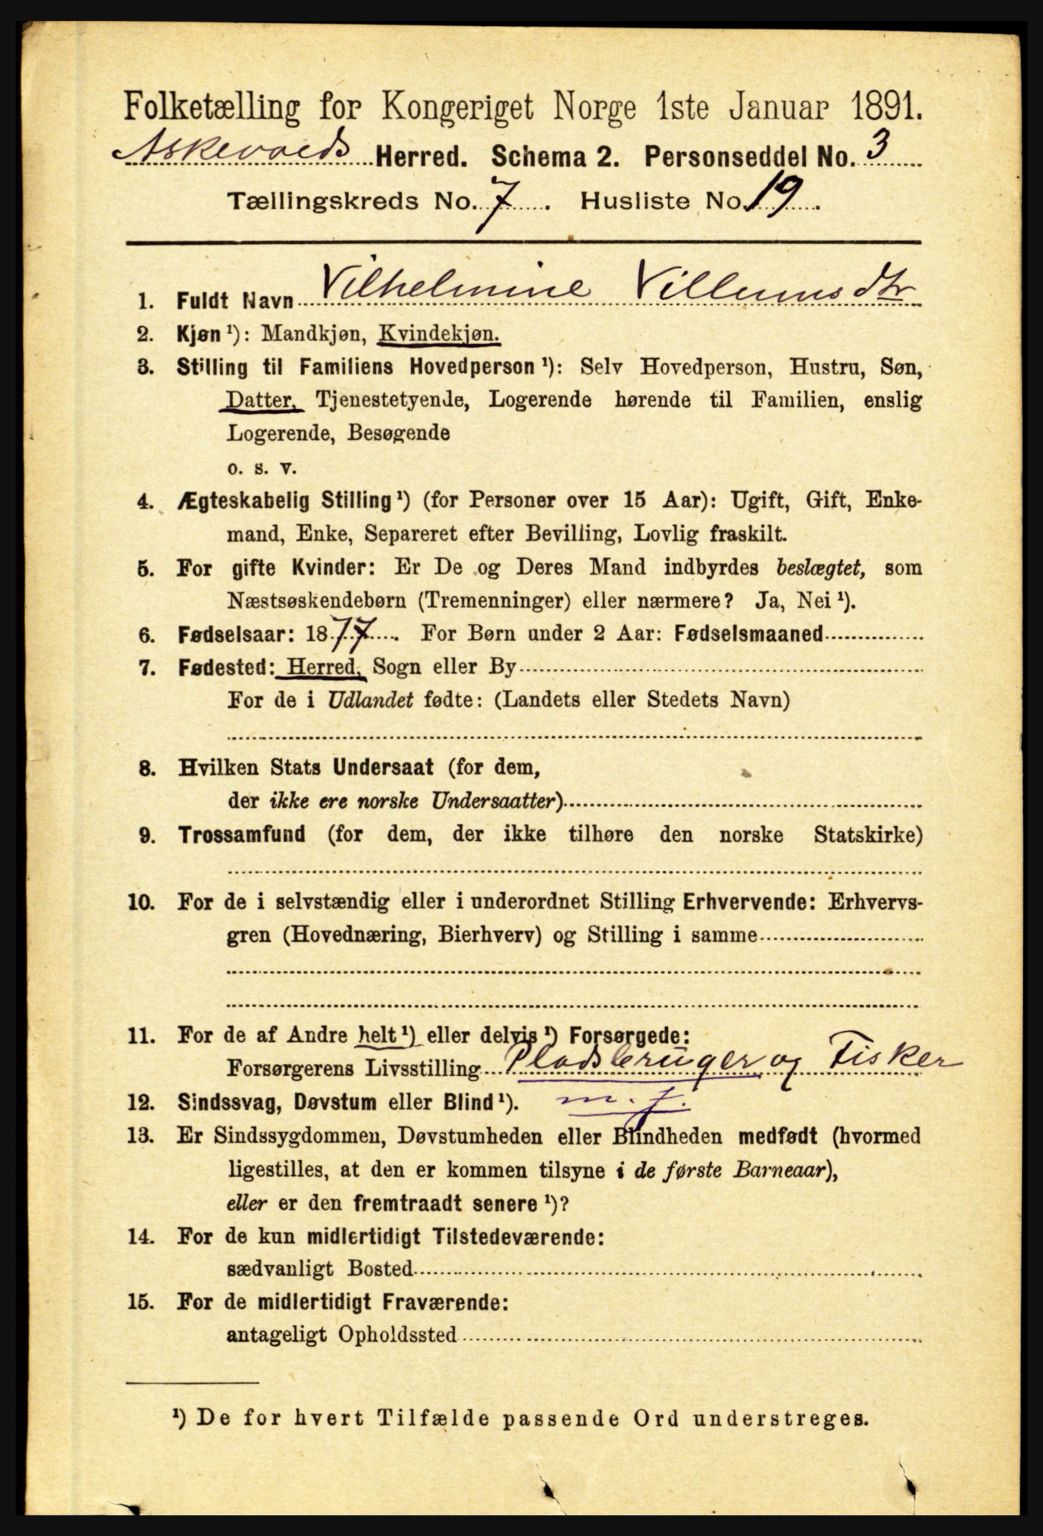 Folketælling for Kongeriget Norge 1ste Januar 1891.
Askevolds Herred. Schema 2. Personseddel No. 3
Tællingskreds No. 7. Husliste No. 19.
1. Fuldt Navn Vilhelmine Villumsdtr
2. Kjøn ¹): Mandkjøn, Kvindekjøn.
3. Stilling til Familiens Hovedperson ¹): Selv Hovedperson, Hustru, Søn,
Datter, Tjenestetyende, Logerende hørende til Familien, enslig
Logerende, Besøgende
o. s. v.
4. Ægteskabelig Stilling ¹) (for Personer over 15 Aar): Ugift, Gift, Enke-
mand, Enke, Separeret efter Bevilling, Lovlig fraskilt.
5. For gifte Kvinder: Er De og Deres Mand indbyrdes beslægtet, som
Næstsøskendebørn (Tremenninger) eller nærmere? Ja, Nei ¹).
6. Fødselsaar: 1877. For Børn under 2 Aar: Fødselsmaaned
7. Fødested: Herred, Sogn eller By
For de i Udlandet fødte: (Landets eller Stedets Navn)
8. Hvilken Stats Undersaat (for dem,
der ikke ere norske Undersaatter)
9. Trossamfund (for dem, der ikke tilhøre den norske Statskirke)
10. For de i selvstændig eller i underordnet Stilling Erhvervende: Erhvervs-
gren (Hovednæring, Bierhverv) og Stilling i samme
11. For de af Andre helt ¹) eller delvis ¹) Forsørgede:
Forsørgerens Livsstilling Pladsbruger og Fisker
12. Sindssvag, Døvstum eller Blind ¹). m. j.
13. Er Sindssygdommen, Døvstumheden eller Blindheden medfødt (hvormed
ligestilles, at den er kommen tilsyne i de første Barneaar),
eller er den fremtraadt senere ¹)?
14. For de kun midlertidigt Tilstedeværende:
sædvanligt Bosted
15. For de midlertidigt Fraværende:
antageligt Opholdssted
¹) De for hvert Tilfælde passende Ord understreges.